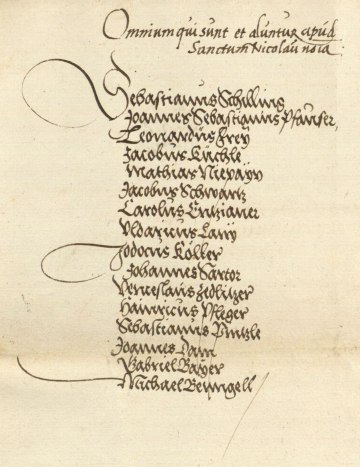 Omnium qui sunt et aluntur apud
Sanctum Nicolaũ noĩa
Sebastianus Schilling
Joannes Sebastianus Pfauser,
Leonardus Frey
Jacobus Küchle
Mathias
Jacobus Schwartz
Carolus
Vdalricus
Jodocus Köller
Johannes Sartor
Venceslaus Zedlitzer
Hainricus Pfleger
Sebastianus
Joannes Dam
Gabriel Bayer
Michael